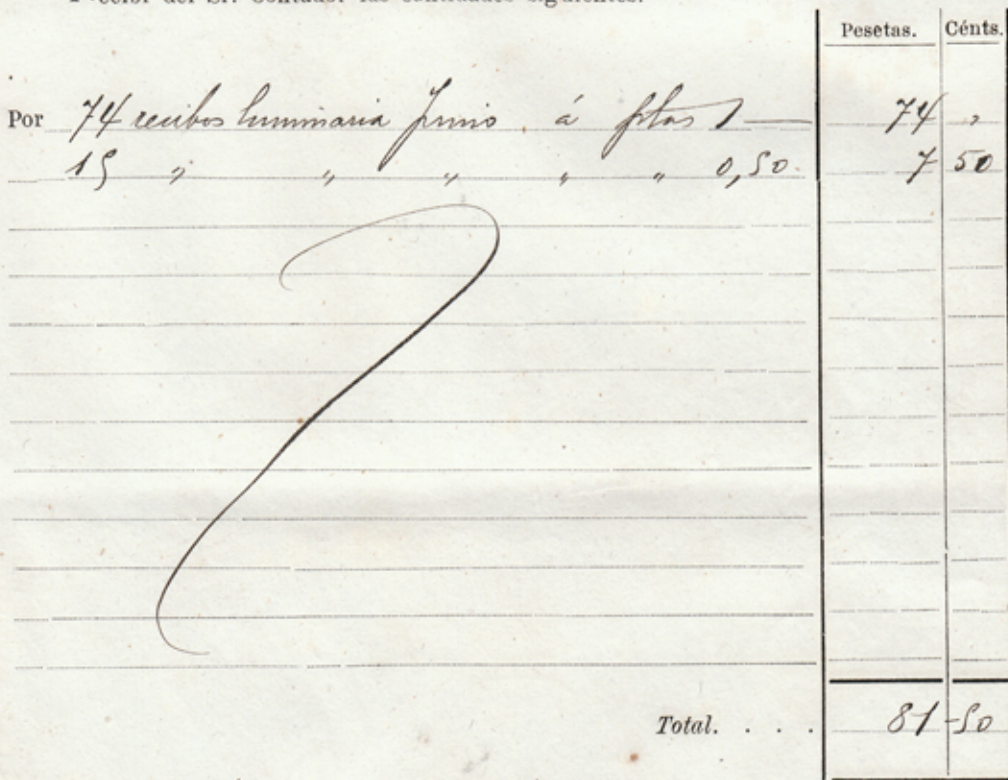 del Sr. Contador las cantidades siguientes:
Pesetas. Cénts.
Por 74 recibos luminaria Junio á ptas 1 — 74 "
15 " " " " " 0,50. 7 50
Total. . . . 81-50